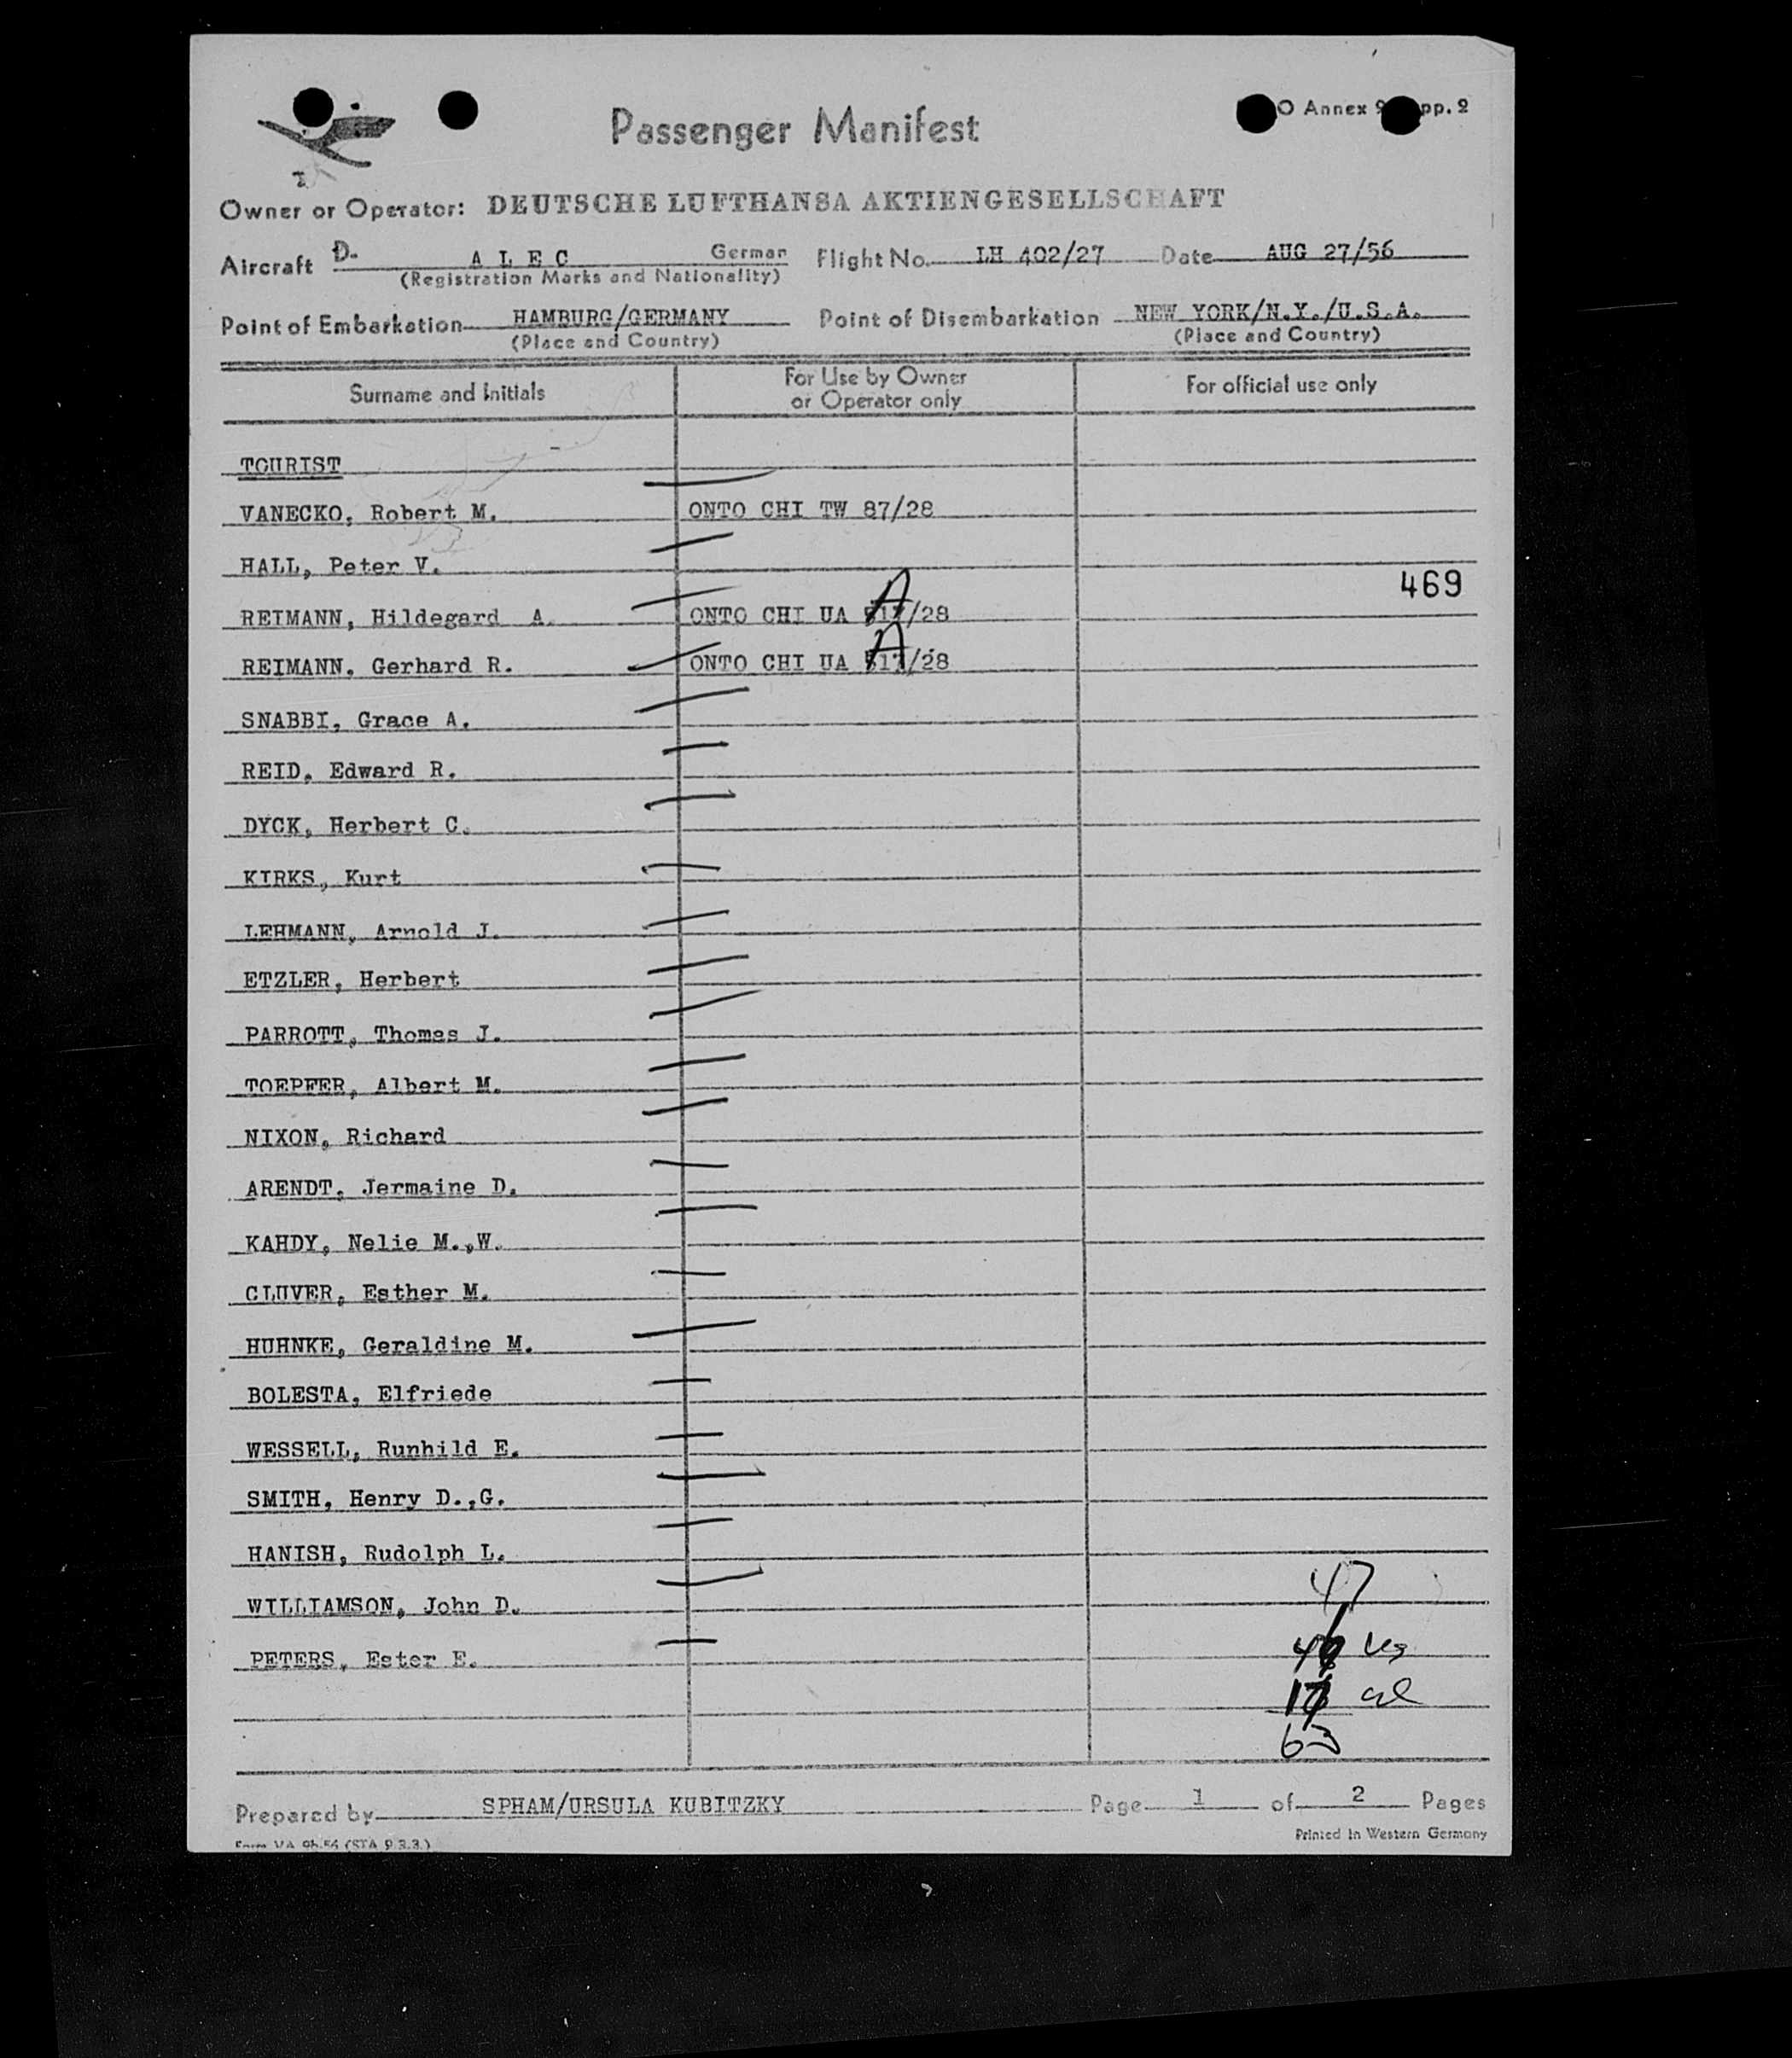 Passenger Manifest
O Annex 9 pp. 2
Owner or Operator: DEUTSCHE LUFTHANSA AKTIENGESELLSCHAFT
Aircraft D- A L E C German Flight No. LH 402/27 Date AUG 27/56
(Registration Marks and Nationality)
Point of Embarkation HAMBURG/GERMANY Point of Disembarkation NEW YORK/N.Y./U.S.A.
(Place and Country) (Place and Country)
Surname and Initials For Use by Owner or Operator only For official use only
TOURIST
VANECKO, Robert M. ONTO CHI TW 87/28
HALL, Peter V.
469
REIMANN, Hildegard A. ONTO CHI UA 517/28
REIMANN, Gerhard R. ONTO CHI UA 517/28
SNABBI, Grace A.
REID, Edward R.
DYCK, Herbert C.
KIRKS, Kurt
LEHMANN, Arnold J.
ETZLER, Herbert
PARROTT, Thomas J.
TOEPFER, Albert M.
NIXON, Richard
ARENDT, Jermaine D.
KAHDY, Nelie M.,W.
CLUVER, Esther M.
HUHNKE, Geraldine M.
BOLESTA, Elfriede
WESSELL, Runhild E.
SMITH, Henry D.,G.
HANISH, Rudolph L.
47
WILLIAMSON, John D.
PETERS, Ester E.
63
Prepared by SPHAM/URSULA KUBITZKY Page 1 of 2 Pages
Form VA 9b-56 (STA 9.3.3.) Printed in Western Germany